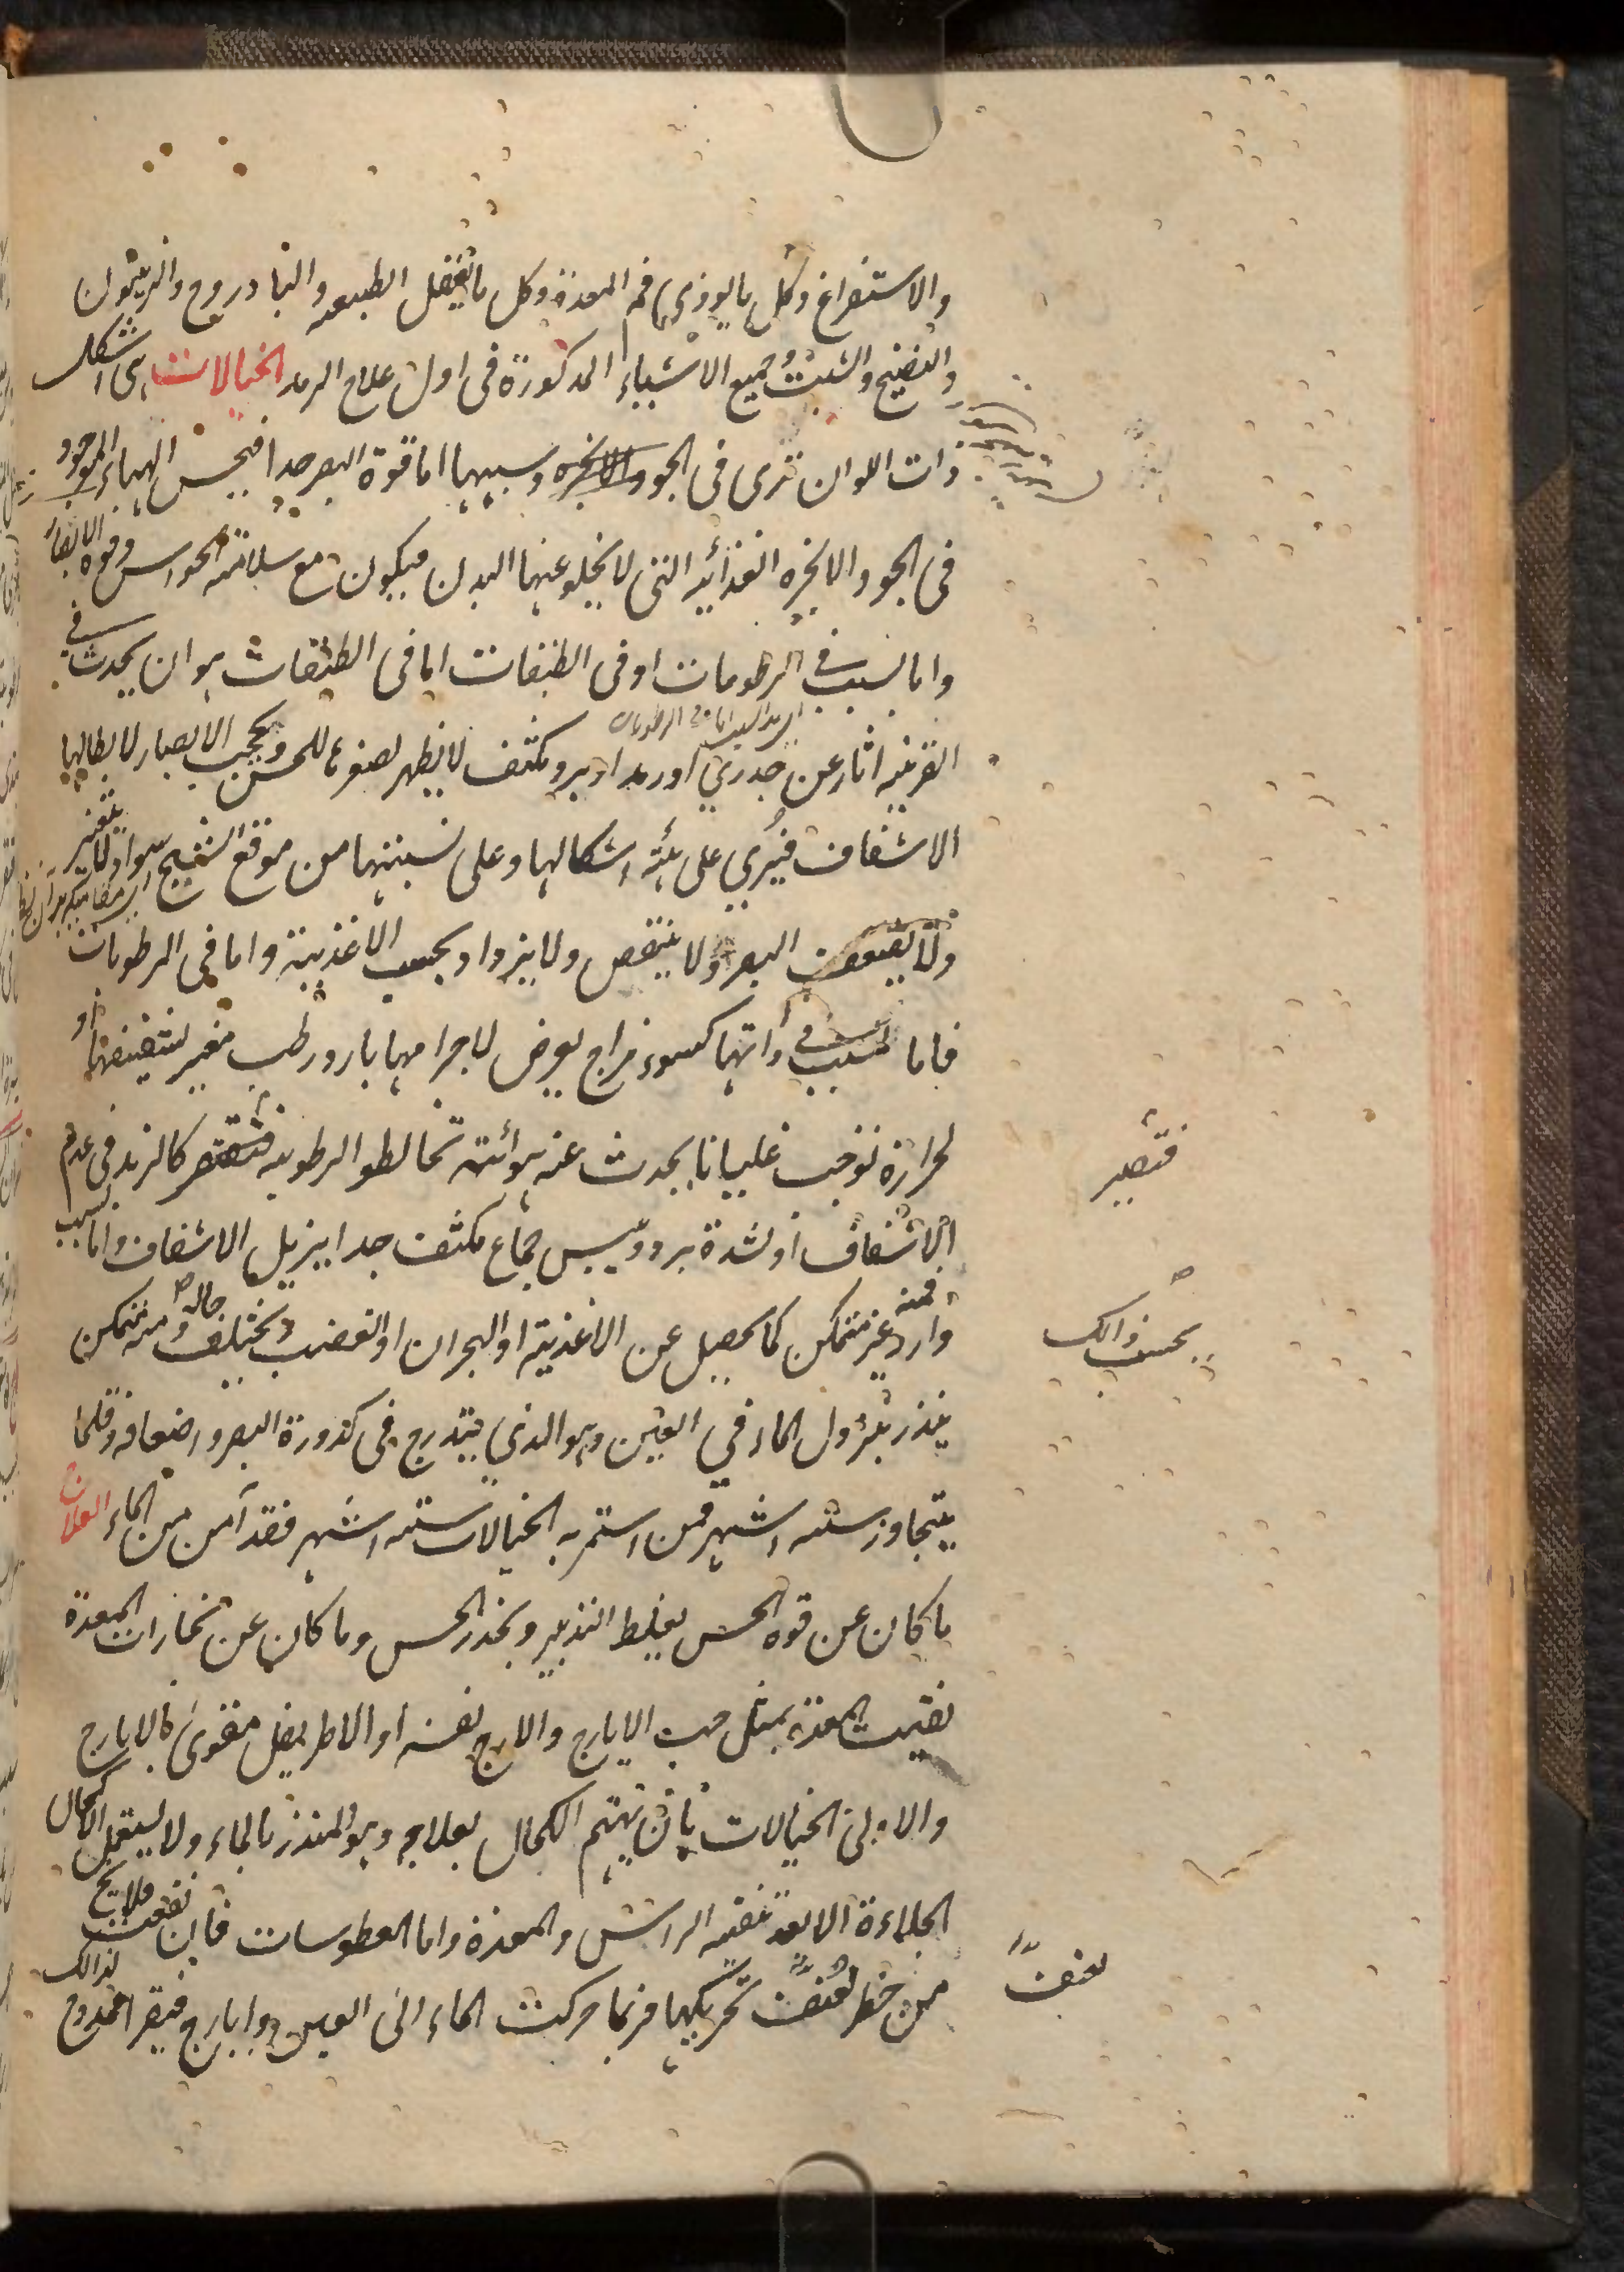 والاستفراغ وكل ما يوذي فم المعدة وكل ما يغفل الطبيعه والبادروج والزيتون
والنضيج والشبث وجميع الاشياء المذكورة فى اول علاج الرمد الخيالات هى اشكال
ذات الوان ترى فى الجو والابخره وسببها اما قوة البصر جدا فيحس الهباء الموجود
فى الجو والابخره الغذائيه التى لا يخلو عنها البدن فيكون مع سلامة الحواس وقوة الابصار
واما لسبب فى الرطوبات او فى الطبقات اما فى الطبقات هو ان يحدث فى
القرنيه اثار عن جدري او رمد او برد مكثف لا يظهر لصغرها للحس وتحجب الابصار لابطالها
الاشفاف فيرى على هيئة اشكالها وعلى نسبتها من موقع الشبح سواد ولا يتغير
ولا يضعف البصر ولا ينتقص ولا يزداد بحسب الاغذية واما فى الرطوبات
فاما لسبب فى ذاتها كسوء مزاج يعرض لاجرامها بارد رطب مغير لشفيفها او
لحرارة توجب غليانا يحدث عنه هوائية تخالط الرطوبه فتصير كالزبد فى عدم
فتصير
الاشفاف او لشدة برد ويبس جماع مكثف جدا يزيل الاشفاف واما لسبب
وارد فمنه غير متمكن كما يحصل عن الاغذية او البحران او الغضب ويختلف حاله ومنه متمكن
بحسب ذالك
ينذر بنزول الماء في العين وهو الذي يتدرج فى كدورة البصر واضعافه وقلما
يتجاوز سته اشهر فمن استمر به الخيالات سته اشهر فقد آمن من الماء العلاج
ما كان عن قوه الحس يغلظ التدبير ويخدر الحس وما كان عن بخارات المعدة
نقيت المعدة بمثل حب الايارج والايارج نفسه او الاطريفل مقوى بالايارج
والاولى الخيالات بان يهتم الكحال بعلاجه وهو المنذر بالماء ولا يستعمل الاكحال
الجلاءة الا بعد تنقيه الراس والمعدة واما العطوسات فان نفعت فلا يخ
من خطر لعنف تحريكها فربما حركت الماء الى العين وايارج فيقرا ممدوح لذالك
لعنف